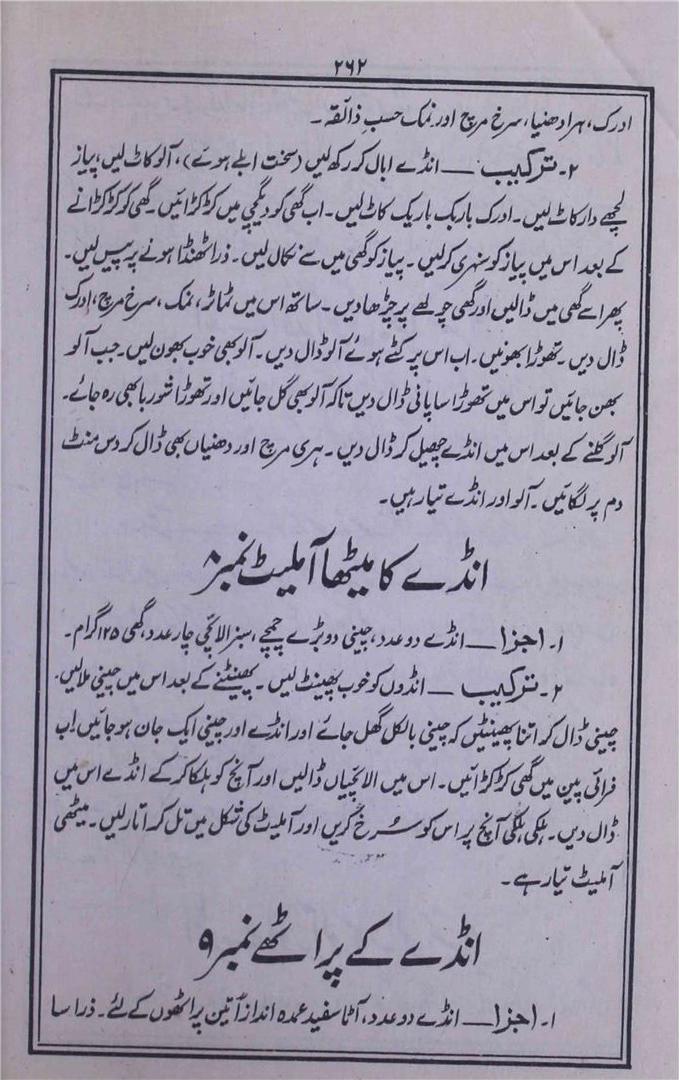 ۲۶۲
ادرک، ہرا دھنیا، سرخ مرچ اور نمک حسبِ ذائقہ۔
۲۔ ترکیب ــــ انڈے ابال کر رکھ لیں (سخت ابلے ہوئے)، آلو کاٹ لیں، پیاز
لچھے دار کاٹ لیں۔ ادرک باریک باریک کاٹ لیں۔ اب گھی کو دیگچی میں کڑکڑائیں۔ گھی کو کڑکڑانے
کے بعد اس میں پیاز کو سنہری کرلیں۔ پیاز کو گھی میں سے نکال لیں۔ ذرا ٹھنڈا ہونے پر پیس لیں۔
پھر اسے گھی میں ڈالیں اور گھی چولھے پر چڑھا دیں۔ ساتھ اس میں ٹماٹر، نمک، سرخ مرچ، ادرک
ڈال دیں۔ تھوڑا بھونیں۔ اب اس پر کٹے ہوئے آلو ڈال دیں۔ آلو بھی خوب بھون لیں۔ جب آلو
بھن جائیں تو اس میں تھوڑا سا پانی ڈال دیں تاکہ آلو بھی گل جائیں اور تھوڑا شوربا بھی رہ جائے۔
آلو گلنے کے بعد اس میں انڈے چھیل کر ڈال دیں۔ ہری مرچ اور دھنیاں بھی ڈال کر دس منٹ
دم پر لگائیں۔ آلو اور انڈے تیار ہیں۔
انڈے کا میٹھا آملیٹ نمبر ۸
۱۔ اجزا ــــ انڈے دو عدد، چینی دو بڑے چمچے، سبز الائچی چار عدد، گھی ۱۲۵ گرام۔
۲۔ ترکیب ــــ انڈوں کو خوب پھینٹ لیں۔ پھینٹنے کے بعد اس میں چینی ملالیں۔
چینی ڈال کر اتنا پھینٹیں کہ چینی بالکل گھل جائے اور انڈے اور چینی ایک جان ہو جائیں۔ اب
فرائی پین میں گھی کڑکڑائیں۔ اس میں الائچیاں ڈالیں اور آنچ کو ہلکا کر کے انڈے اس میں
ڈال دیں۔ ہلکی ہلکی آنچ پر اس کو سُرخ کریں اور آملیٹ کی شکل میں تل کر اتار لیں۔ میٹھی
آملیٹ تیار ہے۔
انڈے کے پراٹھے نمبر ۹
۱۔ اجزا ــــ انڈے دو عدد، آٹا سفید عمدہ اندازاً تین پراٹھوں کے لئے۔ ذرا سا